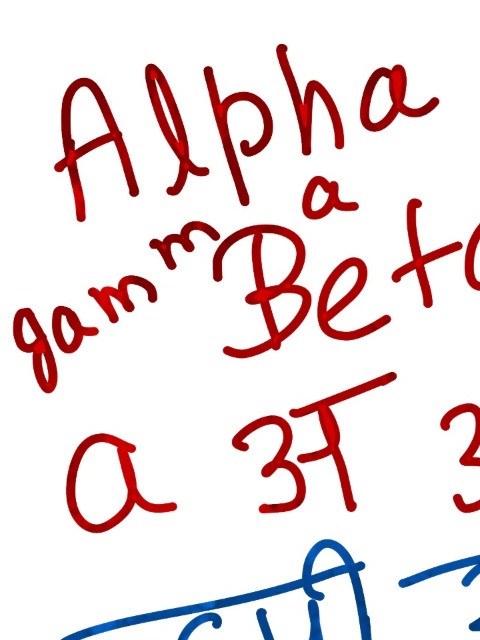 Alpha
gamma Beta
a अ